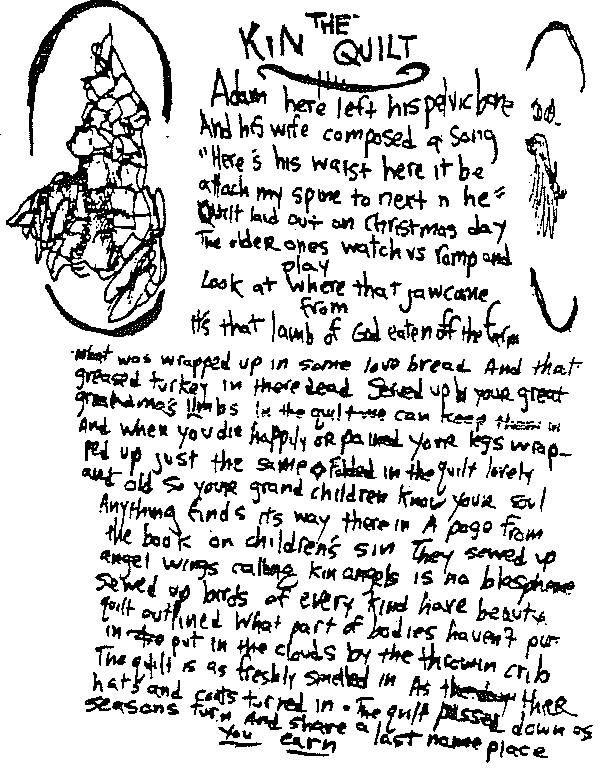 THE
KIN QUILT
Adam here left his pelvic bone
And his wife composed a song
"Here's his waist here it be
attach my spine to next n he"
Quilt laid out on Christmas day
The older ones watch vs romp and
play
Look at where that jaw came
from
it's that lamb of God eaten off the
what was wrapped up in some love bread And that
greased turkey in there dead Served up by your great
grandma's limbs in the quilt we can keep them in
And when you die happily or pained your legs wrap-
ped up just the same folded in the quilt lovely
and old so your grand children know your soul
Anything finds its way there in A page from
the book on children's sin They sewed up
angel wings calling kin angels is no blaspheme
sewed up birds of every kind have beauty
quilt outlined what part of bodies haven't pur
in the put in the clouds by the thrown crib
The quilt is as freshly smelled in As the there
hats and coats turned in. The quilt passed down as
seasons turn And share a last name place
you earn